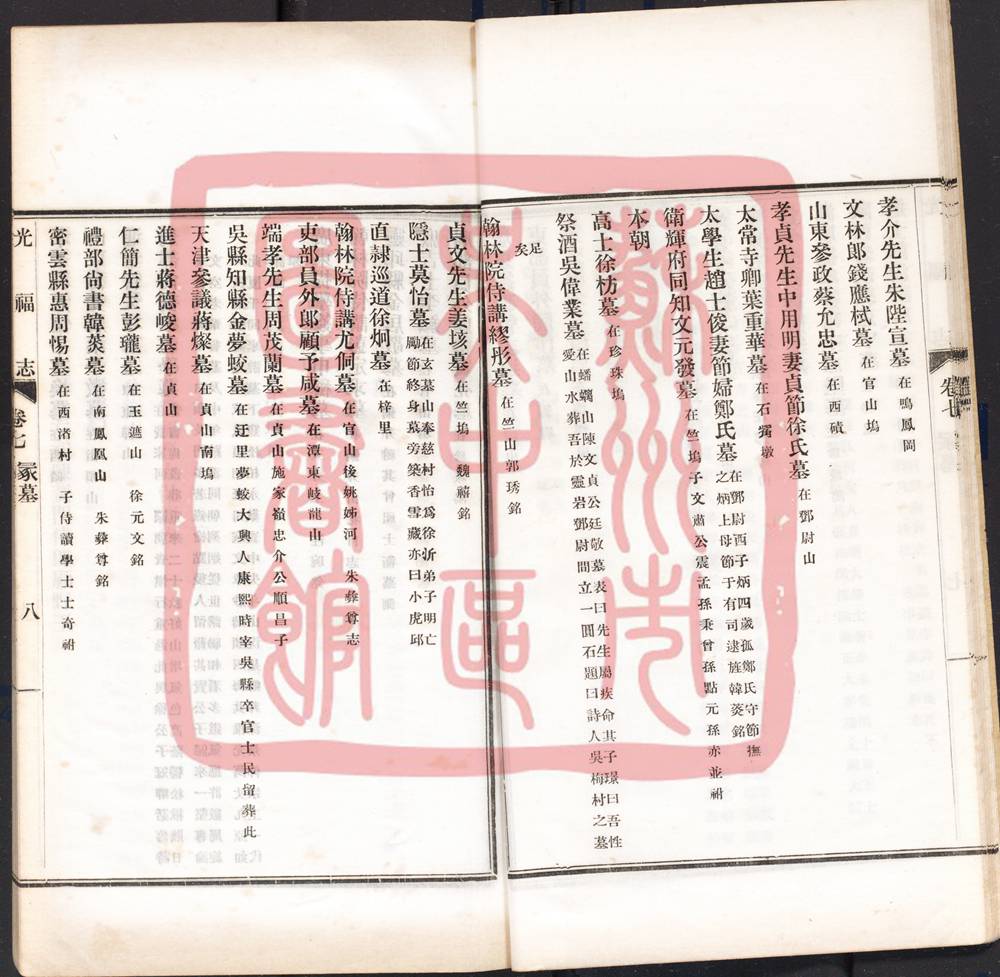 孝介先生朱陛宣墓在鳴鳳岡
文林郎錢應栻墓在官山塢
山東參政蔡允忠墓在西磧
孝貞先生申用明妻貞節徐氏墓在鄧尉山
太常寺卿葉重華墓在石墩
太學生趙士俊妻節婦鄭氏墓在鄧尉西子炳四歲孤鄭氏守節撫之炳上母節于有司逮旌韓菼銘
衛輝府同知文元發墓在竺塢子文肅公震孟孫秉曾孫點元孫亦並祔
本朝
高士徐枋墓在珍珠塢
祭酒吳偉業墓在蟠螭山陳文貞公廷敬墓表曰先生屬疾命其子璟曰吾性愛山水葬吾於靈岩鄧尉間立一圓石題曰詩人吳梅村之墓
足矣
翰林院侍講繆彤墓在竺山郭琇銘
貞文先生姜垓墓在竺塢魏禧銘
隱士莫怡墓在玄墓山奉慈村怡為徐汧弟子明亡勵節終身墓旁築香雪藏亦曰小虎邱
直隸巡道徐炯墓在梓里
翰林院侍講尤侗墓在官山後姚姊河朱彝尊志
吏部員外郎顧予咸墓在潭東岐龍山
端孝先生周茂蘭墓在貞山施家嶺忠介公順昌子
吳縣知縣金夢蛟墓在迂里夢蛟大興人康熙時宰吳縣卒官士民留葬此
天津參議蔣燦墓在貞山南塢
進士蔣德峻墓在貞山塢
仁簡先生彭瓏墓在玉遮山徐元文銘
禮部尚書韓菼墓在南鳳凰山朱彝尊銘
密雲縣惠周惕墓在西渚村子侍讀學士士奇祔
光福志
卷七冢墓
八
卷七
蘇州市
吳中區
圖書館